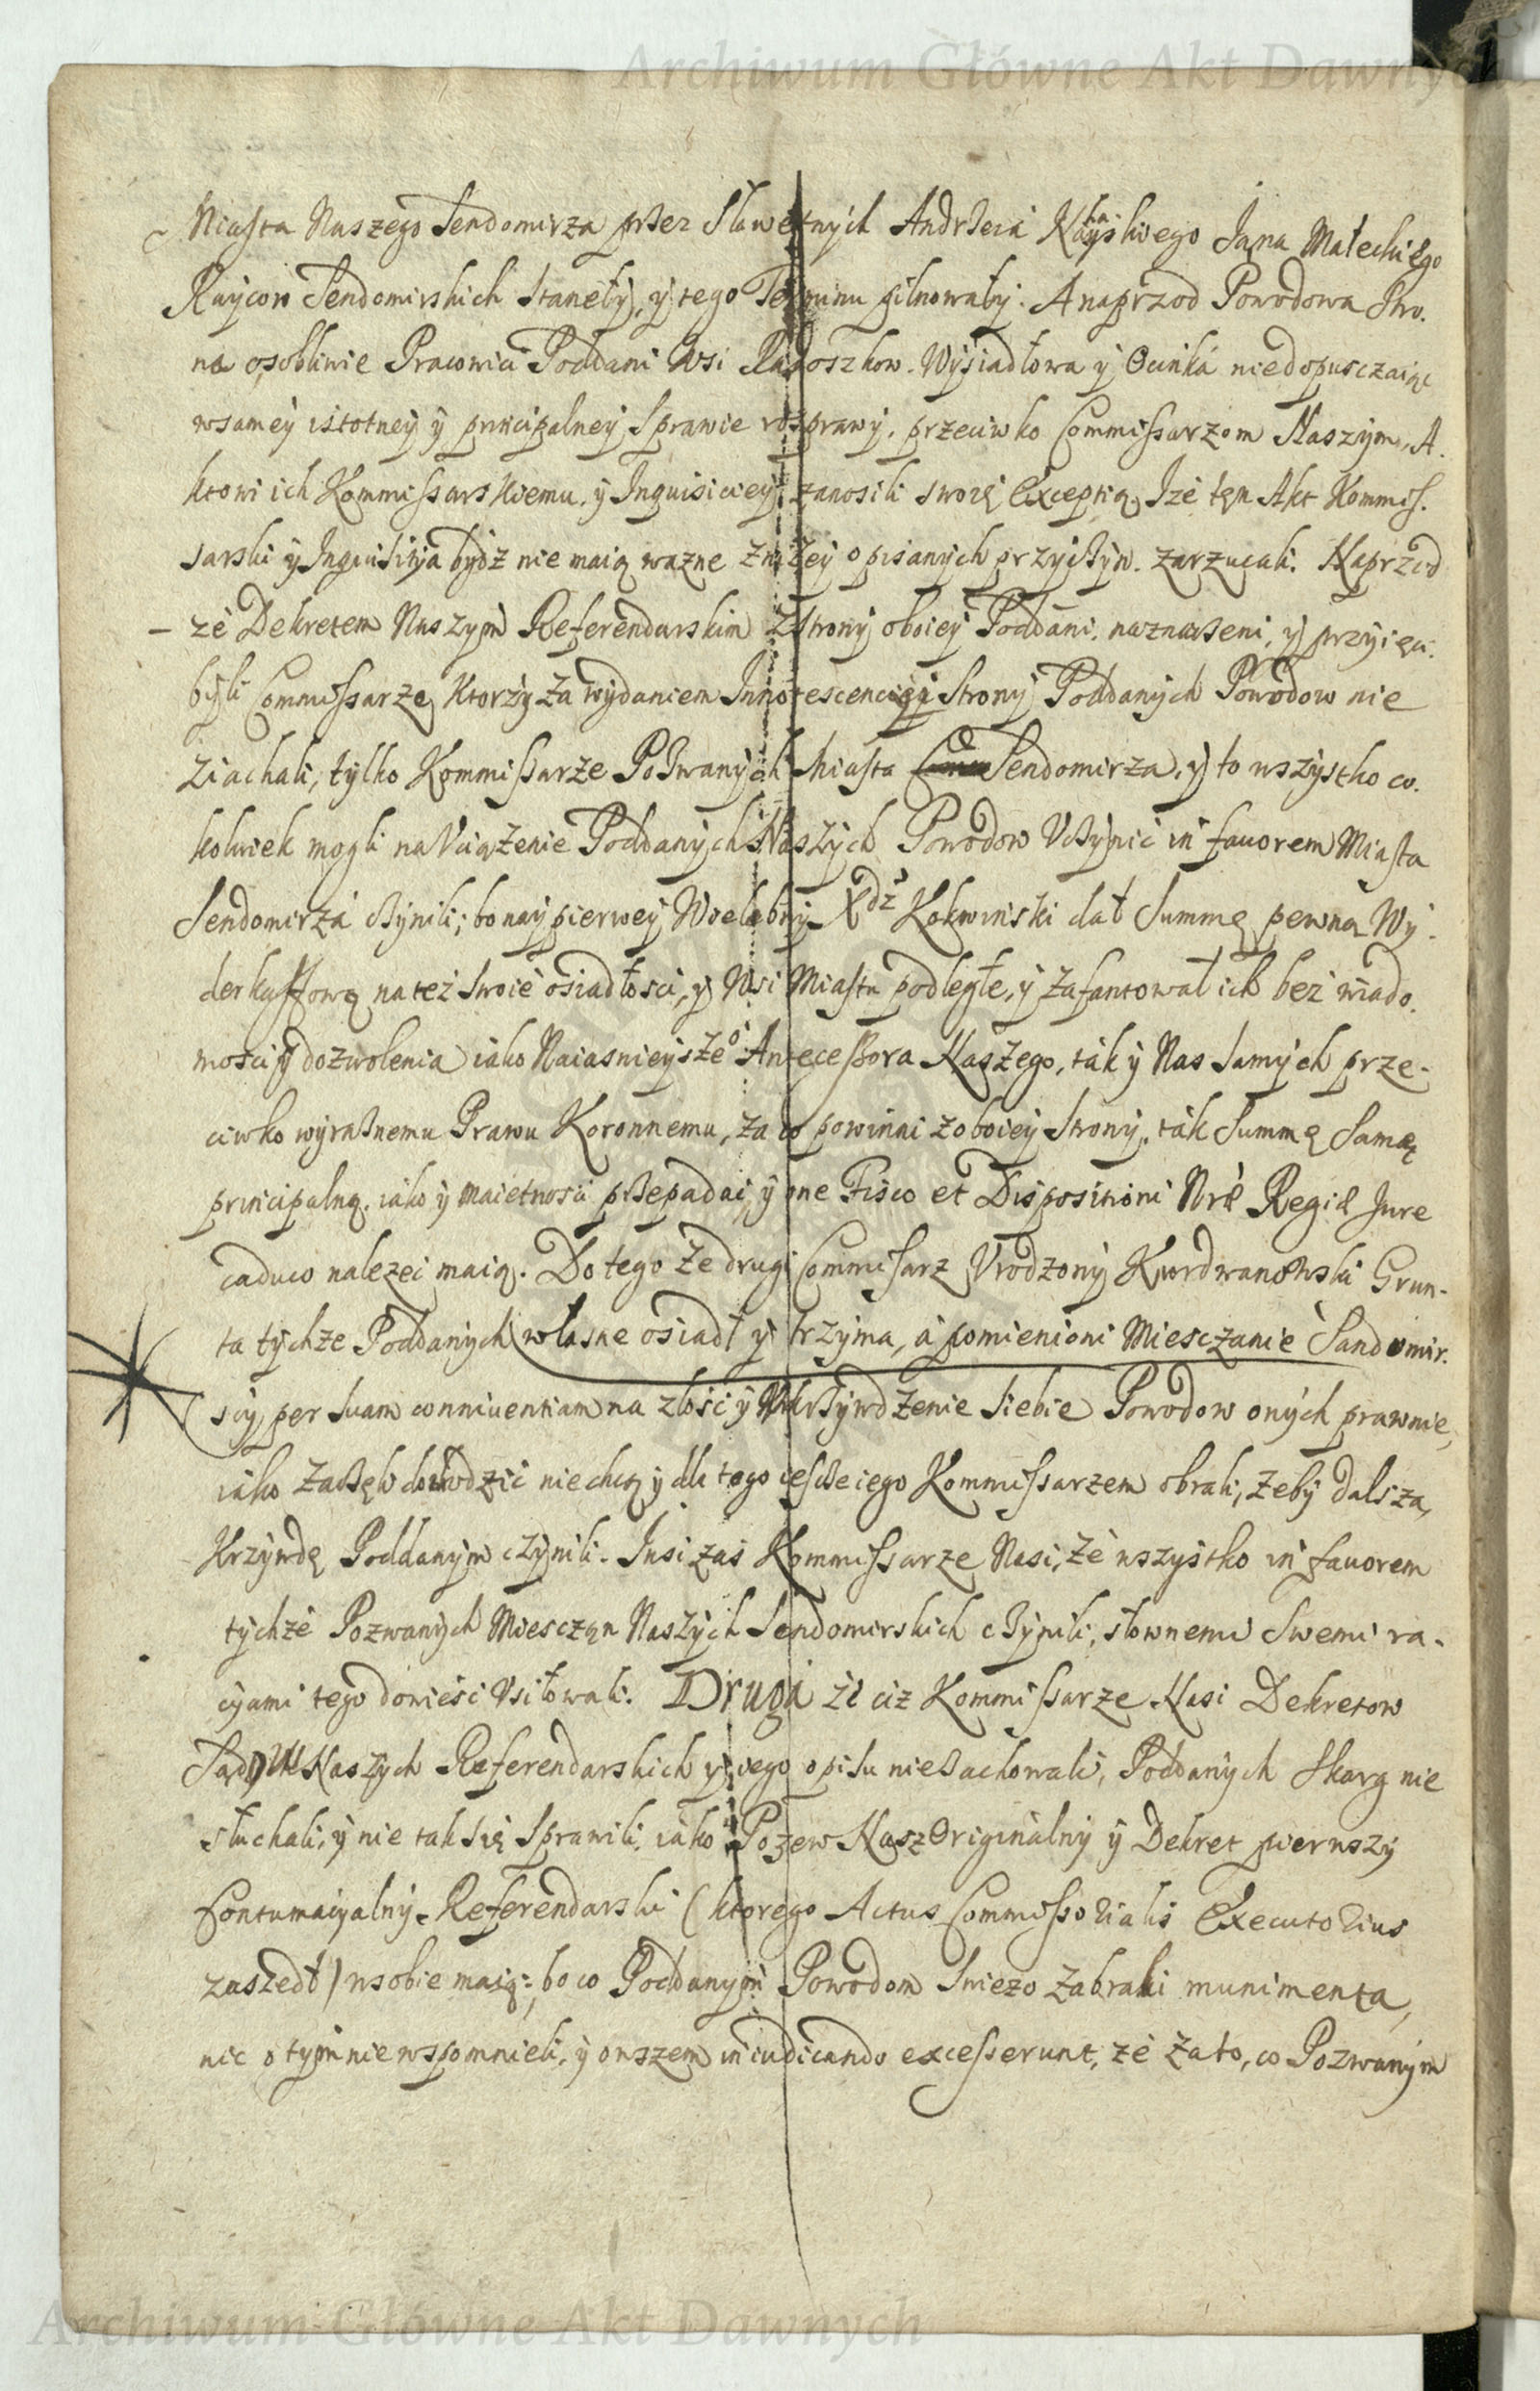 Archiwum Główne Akt Dawnych
Miasta Naszego Sendomirza przez Sławetnych Andrzeia Jana Małeckiego
Raycow Sendomirskich Stanęły, y tego Terminu pilnowały. A naprzod Powodowa Stro.
na osobliwie Pracowici Poddani Wsi Radoszkow. Wysiadłowa y Ocinka niedopusczaiąc
wsamey istotney y principalney Sprawie rosprawy, przeciwko Commissarzom Naszym, A.
ktowi ich Kommissarskiemu, y Inquisiciey zanosili swoię Exceptią, Iże tęn Akt Kommis.
sarski y Inquisitia bydź nie maią wazne zniżey opisanych przyczyn. zarzucali. Naprzod
– że Dekretem Naszym Referendarskim z Strony oboiey Poddani, naznaczeni, y przyięci.
byli Commissarze, Ktorzy za wydaniem Innotescenciey Strony Poddanych Powodow nie
ziachali, tylko Kommissarze Pozwanych Miasta Sendomirza, y to wszystko co.
kolwiek mogli na Uciążenie Poddanych Naszych Powodow Uczynić in fauorem Miasta
Sendomirza czynili; bo naypierwey Wielebny Xdz Kokwinski dał Summę pewną Wy.
derkaffową na też swoie osiadłosci, y Wsi Miastu podległe, y zafantował ich bez wiado.
mosci y dozwolenia iako Naiasnieysze° Antecessora Naszego, ták y Nas Samych prze-
ciwko wyraznemu Prawu Koronnemu, za co powinni z oboiey Strony, ták Summę Samą
principalną, iáko y maietnosci przepadać, y one Fisco et Dispositioni Nrӕ Regiӕ Jure
caduco nalezeć maią. Do tego że drugi Commissarz Urodzony Kurdwanowski Grun-
ta tychże Poddanych własne osiadł y trzyma, á pomienioni Miesczanie Sandomir.
scy, per suam conniuentiam na złość y Ukrzywdzenie Siebie Powodow onych prawnie,
iako zaczęli dochodzić nie chcą y dla tego ieszcze iego Kommissarzem obrali, żeby dalszą,
Krzywdę Poddanym czynili. Insi zaś Kommissarze Nasi, że wszystko in fauorem
tychże Pozwanych Miesczan Naszych Sendomirskich czynili, słownemi Swemi ra-
cyami tego dowiesć Usiłowali. Druga że ciż Kommissarze Nasi Dekretow
Sądow Naszych Referendarskich y iego opisu niezachowali, Poddanych Skarg nie
słuchali, y nie tak się Sprawili, iáko Pozew Nasz Originalny y Dekret pierwszy
Contumacyalny Referendarski (ktorego Actus Commissorialis Executorius
zaszedł) wsobie maią; bo co Poddanym Powodom Swiezo zabrali munimenta,
nic o tym nie wspomnieli, y owszem in iudicando excesserunt, że za to, co Pozwanym
Archiwum Główne Akt Dawnych